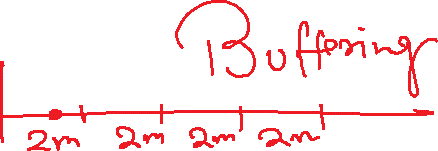 Buffering
2m 2m 2m 2m